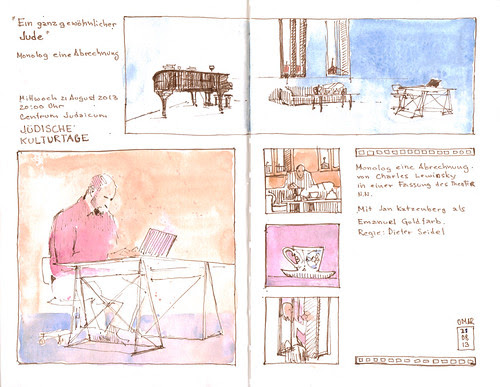 "Ein ganz gewöhnlicher
Jude"
Monolog eine Abrechnung
Mittwoch 21 August 2013
20:00 Uhr
Centrum Judaicum
JÜDISCHE
KULTURTAGE
Monolog eine Abrechnung.
von Charles Lewinsky
in einer Fassung des Theater
N.N.
Mit Jan Katzenberg als
Emanuel Goldfarb.
Regie: Dieter Seidel
OMAR
21
08
13